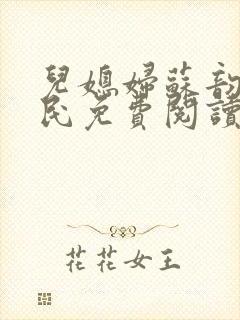 兒媳婦蘇韵
民免費閱讀
花花女王